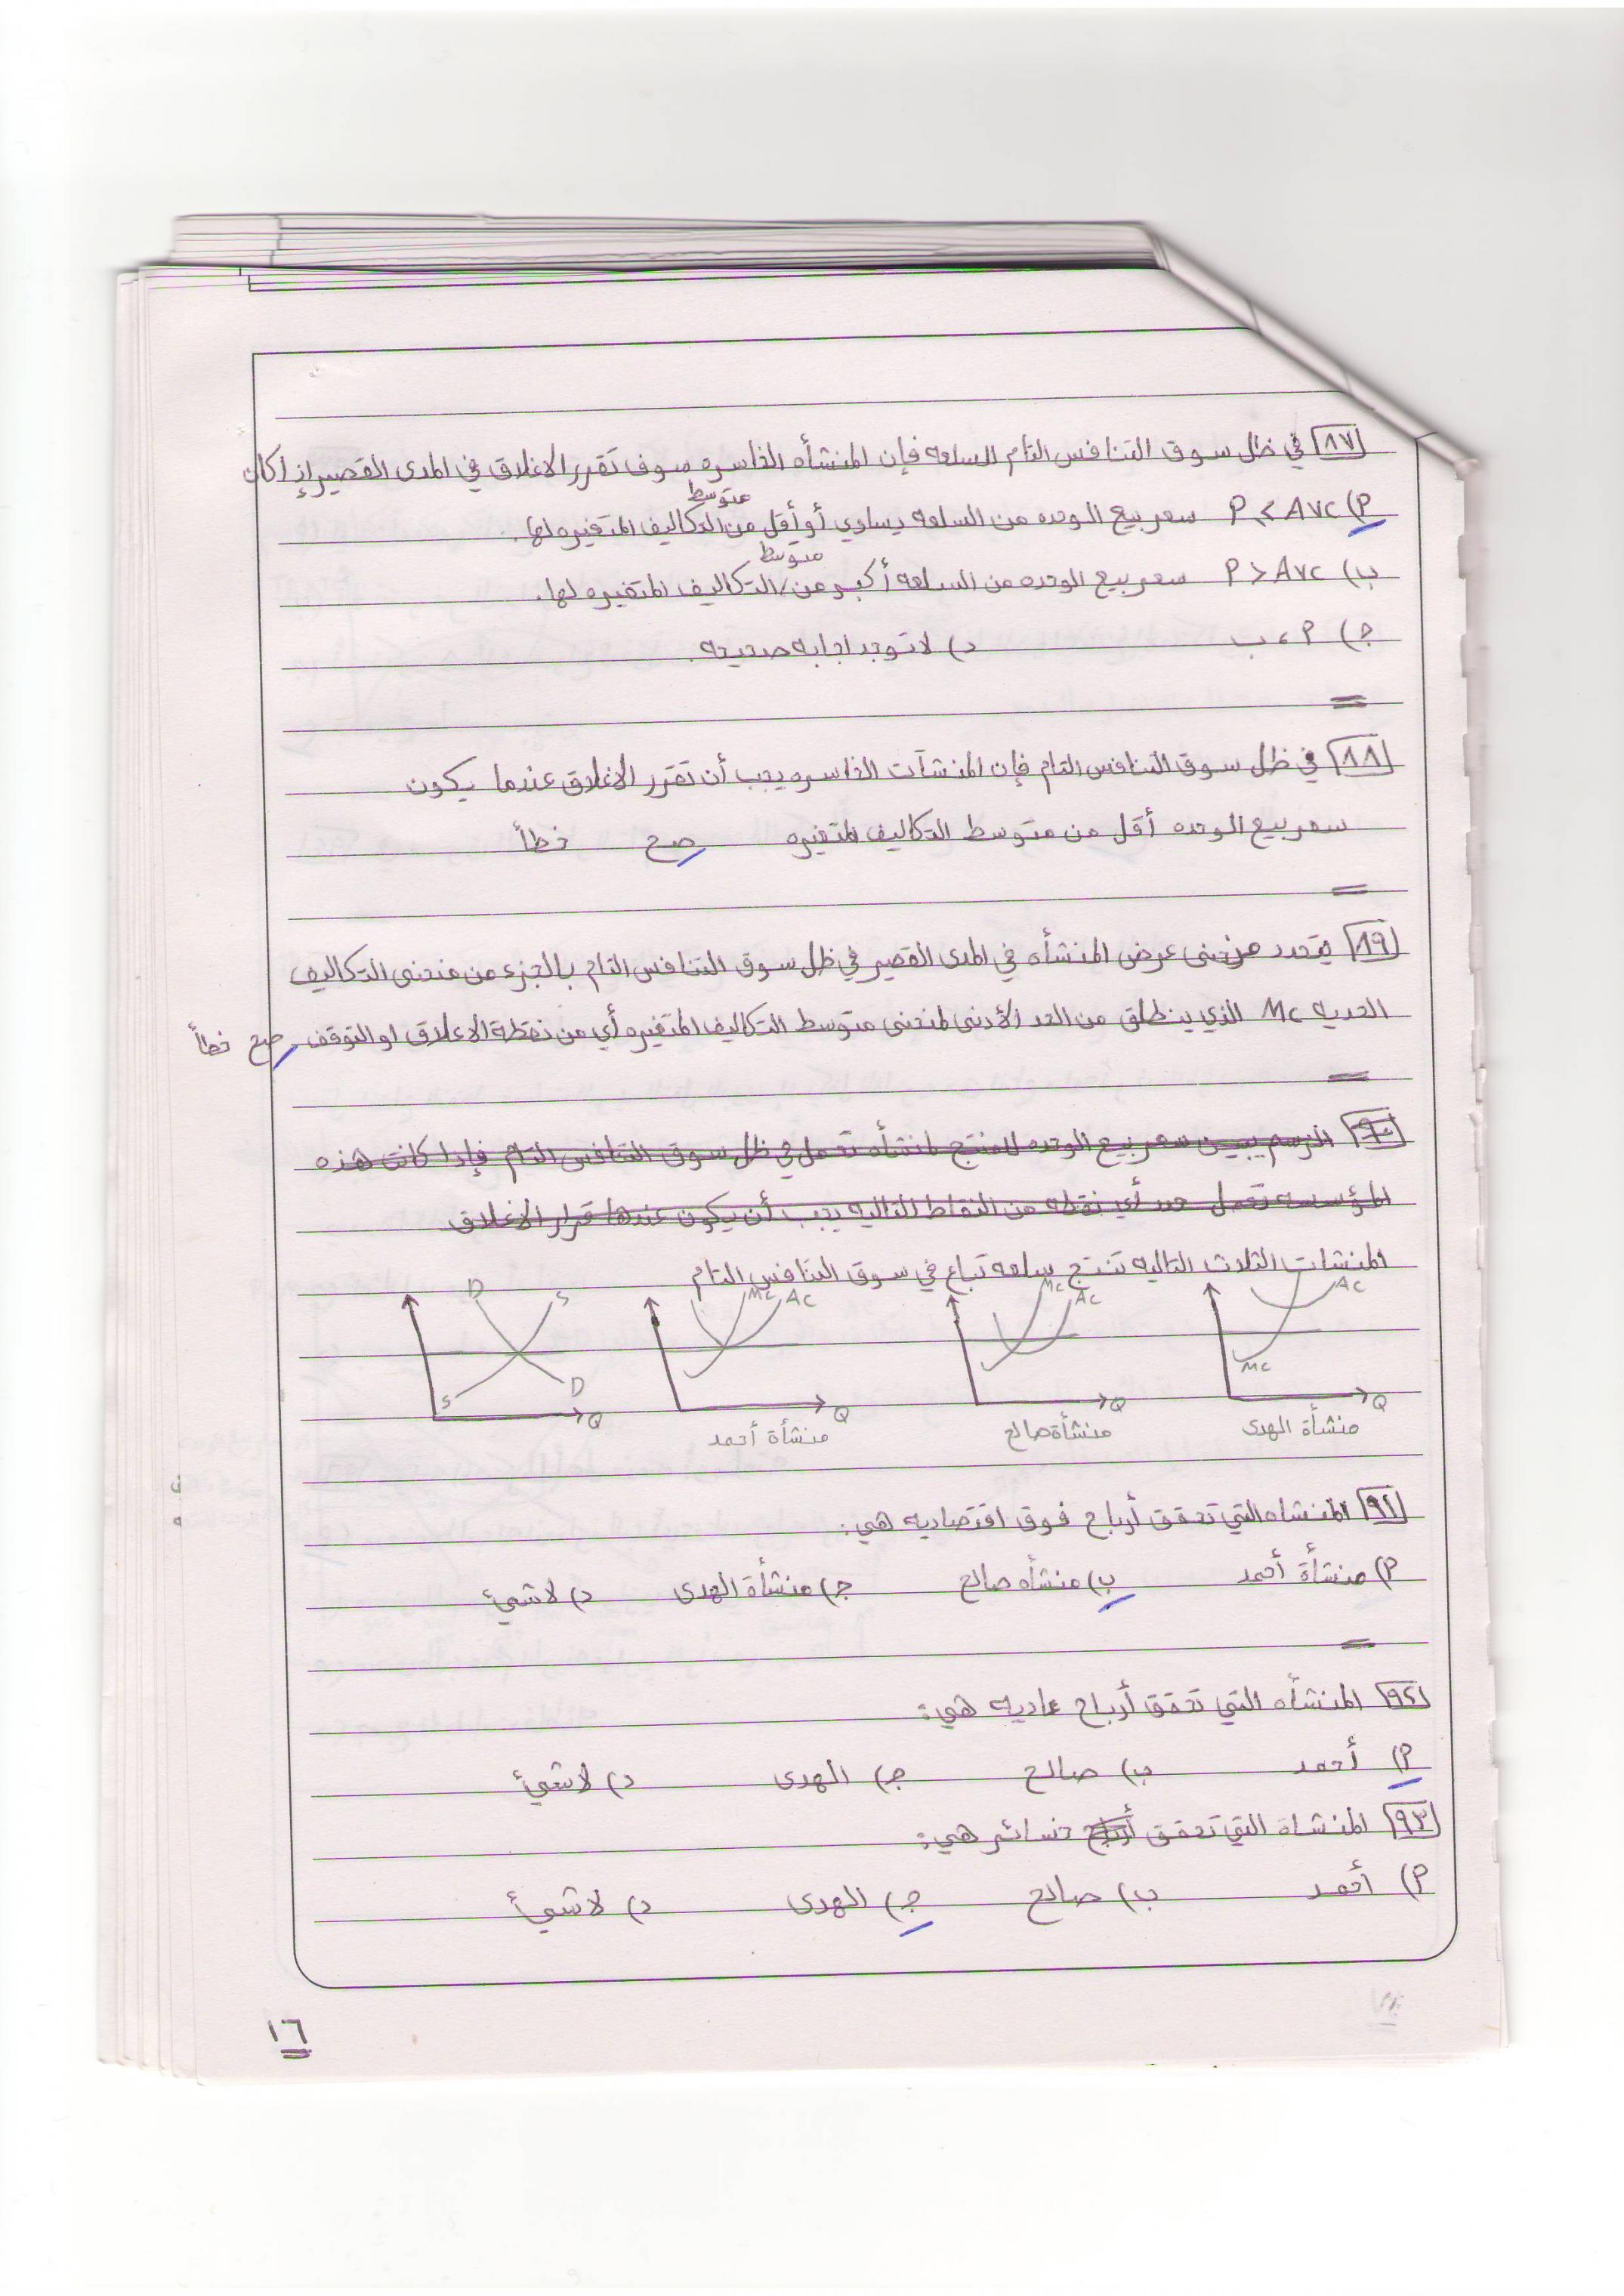 ٨٧ في ظل سوق التنافس التام للسلعه فإن المنشأه الخاسره سوف تقرر الاغلاق في المدى القصير إذا كان
أ) P < AVC سعر بيع الوحده من السلعه يساوي أو أقل من متوسط التكاليف المتغيره لها.
ب) P > AVC سعر بيع الوحده من السلعه أكبر من متوسط التكاليف المتغيره لها.
ج) أ، ب د) لا توجد اجابه صحيحه.
٨٨ في ظل سوق التنافس التام فإن المنشآت الخاسره يجب أن تقرر الاغلاق عندما يكون
سعر بيع الوحده أقل من متوسط التكاليف المتغيره صح خطأ
٨٩ يتحدد منحنى عرض المنشأه في المدى القصير في ظل سوق التنافس التام بالجزء من منحنى التكاليف
الحديه MC الذي ينطلق من الحد الأدنى لمنحنى متوسط التكاليف المتغيره أي من نقطة الاغلاق او التوقف صح خطأ
٩٠ الرسم يبين سعر بيع الوحده للمنتج لمنشأه تعمل في ظل سوق التنافس التام فإذا كانت هذه
المؤسسه تعمل عند أي نقطه من النقاط التاليه يجب أن يكون عندها قرار الاغلاق
المنشات الثلاث التاليه تنتج سلعه تباع في سوق التنافس التام
AC MC Q
MC AC Q
MC AC Q
D S S D Q
منشأة الهدى منشأة صالح منشأة أحمد
٩١ المنشاه التي تحقق أرباح فوق اقتصاديه هي:
أ) منشأة أحمد ب) منشأه صالح ج) منشأة الهدى د) لا شيئ
٩٢ المنشأه التي تحقق أرباح عاديه هي:
أ) أحمد ب) صالح ج) الهدى د) لا شيئ
٩٣ المنشاة التي تحقق أرباح خسائر هي:
أ) أحمد ب) صالح ج) الهدى د) لا شيئ
١٦